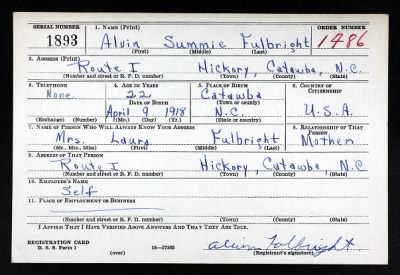 SERIAL NUMBER 1. NAME (Print) ORDER NUMBER
1893 Alvin Summie Fulbright 1486
(First) (Middle) (Last)
2. ADDRESS (Print)
Route I Hickory, Catawba, N.C.
(Number and street or R. F. D. number) (Town) (County) (State)
3. TELEPHONE 4. AGE IN YEARS 5. PLACE OF BIRTH 6. COUNTRY OF CITIZENSHIP
None 22 Catawba
DATE OF BIRTH (Town or county)
April 9 1918 N.C. U.S.A.
(Exchange) (Number) (Mo.) (Day) (Yr.) (State or country)
7. NAME OF PERSON WHO WILL ALWAYS KNOW YOUR ADDRESS 8. RELATIONSHIP OF THAT PERSON
Mrs. Laura Fulbright Mother
(Mr., Mrs., Miss) (First) (Middle) (Last)
9. ADDRESS OF THAT PERSON
Route I Hickory, Catawba N.C
(Number and street or R. F. D. number) (Town) (County) (State)
10. EMPLOYER'S NAME
Self
11. PLACE OF EMPLOYMENT OR BUSINESS
(Number and street or R. F. D. number) (Town) (County) (State)
I AFFIRM THAT I HAVE VERIFIED ABOVE ANSWERS AND THAT THEY ARE TRUE.
REGISTRATION CARD
D. S. S. Form 1 (over) 16—17105 Alvin Fulbright.
(Registrant's signature)